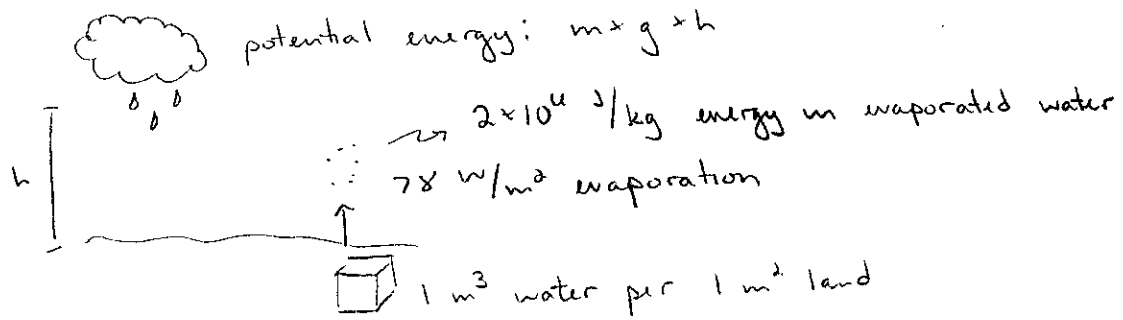 potential energy: m × g × h
2×10⁶ J/kg energy in evaporated water
h
78 W/m² evaporation
1 m³ water per 1 m² land